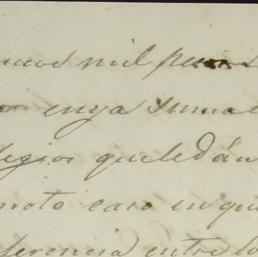 mil pesos
cuya suma
legios quele dán
moto caso en qu
ferencia entre lo